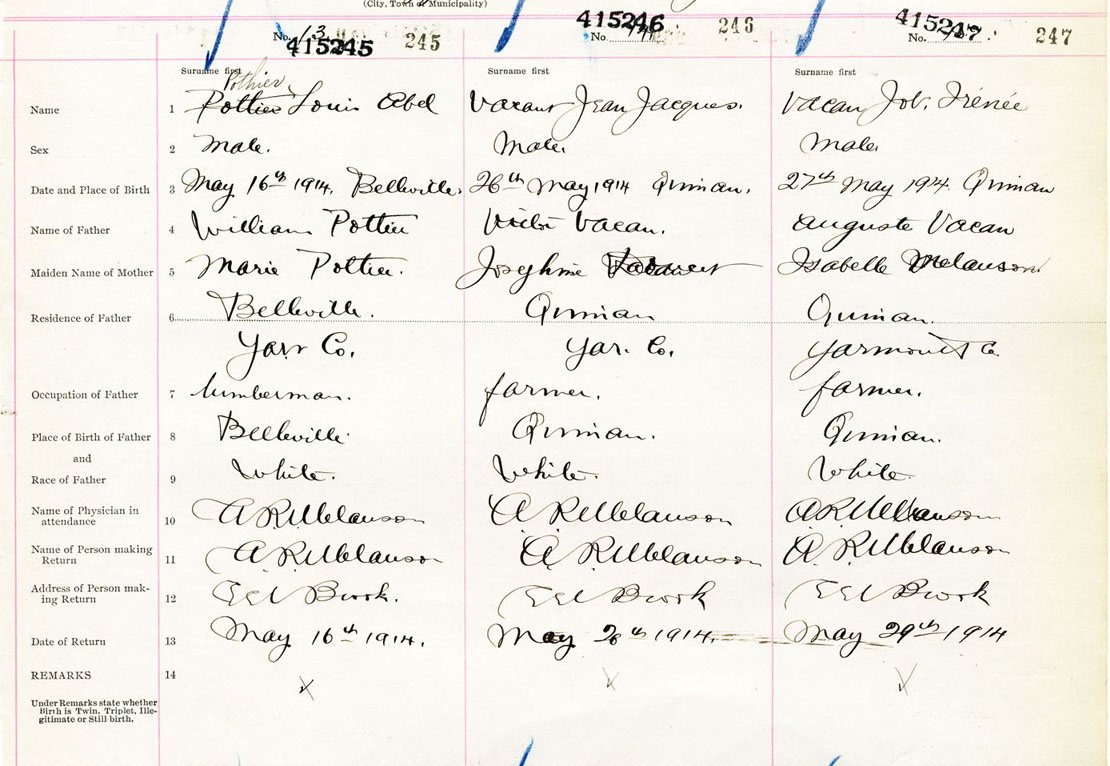 (City, Town or Municipality)
No. 13 415245 245
415246 No. 246
415247 No. 247
Surname first Surname first Surname first
Pothier
Name 1 Pottier Louis Abel Vacant Jean Jacques. Vacan Job. Irénée
Sex 2 Male. Male. Male.
Date and Place of Birth 3 May 16th 1914. Belleville. 26th May 1914 Quinan. 27th May 1914. Quinan
Name of Father 4 William Pottier Victor Vacan. Auguste Vacan
Maiden Name of Mother 5 Marie Pottier. Josephine Isabelle Melanson
Residence of Father 6 Belleville. Quinan Quinan.
Yar. Co. Yar. Co. Yarmouth Co.
Occupation of Father 7 lumberman. farmer. farmer.
Place of Birth of Father 8 Belleville. Quinan. Quinan.
and
Race of Father 9 White. White. White.
Name of Physician in attendance 10 A. R. Melanson A. R. Melanson A. R. Melanson
Name of Person making Return 11 A. R. Melanson A. R. Melanson A. R. Melanson
Address of Person mak-
ing Return 12 Eel Brook. Eel Brook Eel Brook
Date of Return 13 May 16th 1914. May 28th 1914. May 29th 1914
REMARKS 14
X X X
Under Remarks state whether
Birth is Twin, Triplet, Ille-
gitimate or Still-birth.